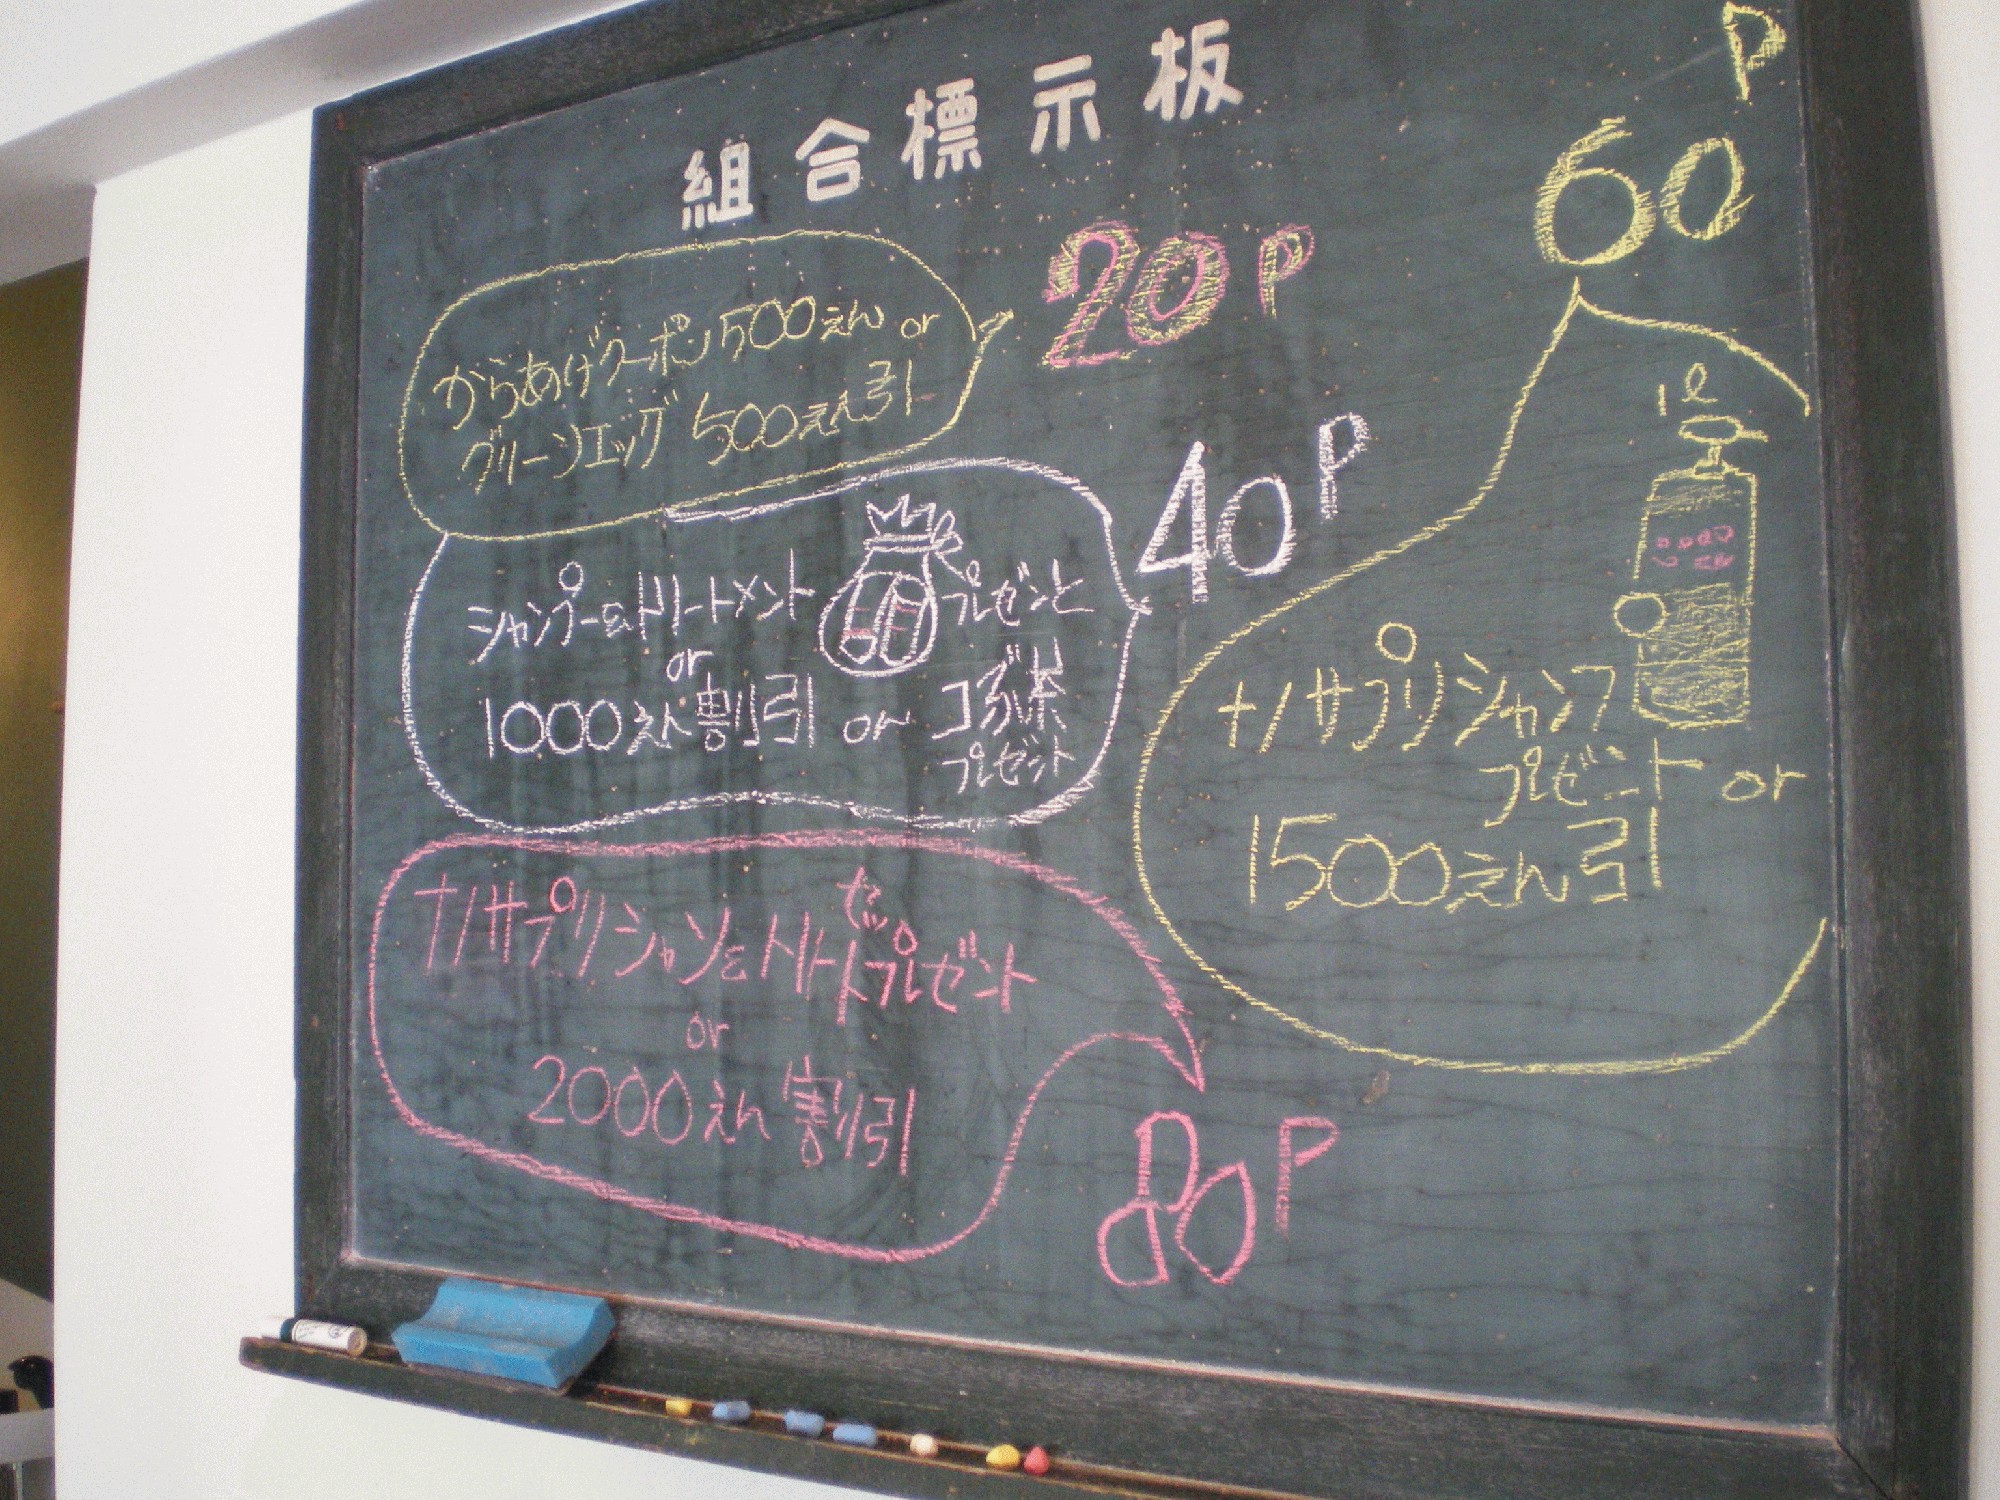 組合標示板
20P
からあげクーポン500えん or
グリーンエッグ 500えん引
40P
シャンプー&トリートメント プレゼント
or
1000えん割引 or コブ茶
プレゼント
60P
1ℓ
ナノサプリシャンプー
プレゼント or
1500えん引
80P
ナノサプリシャン&トリートセップレゼント
or
2000えん割引